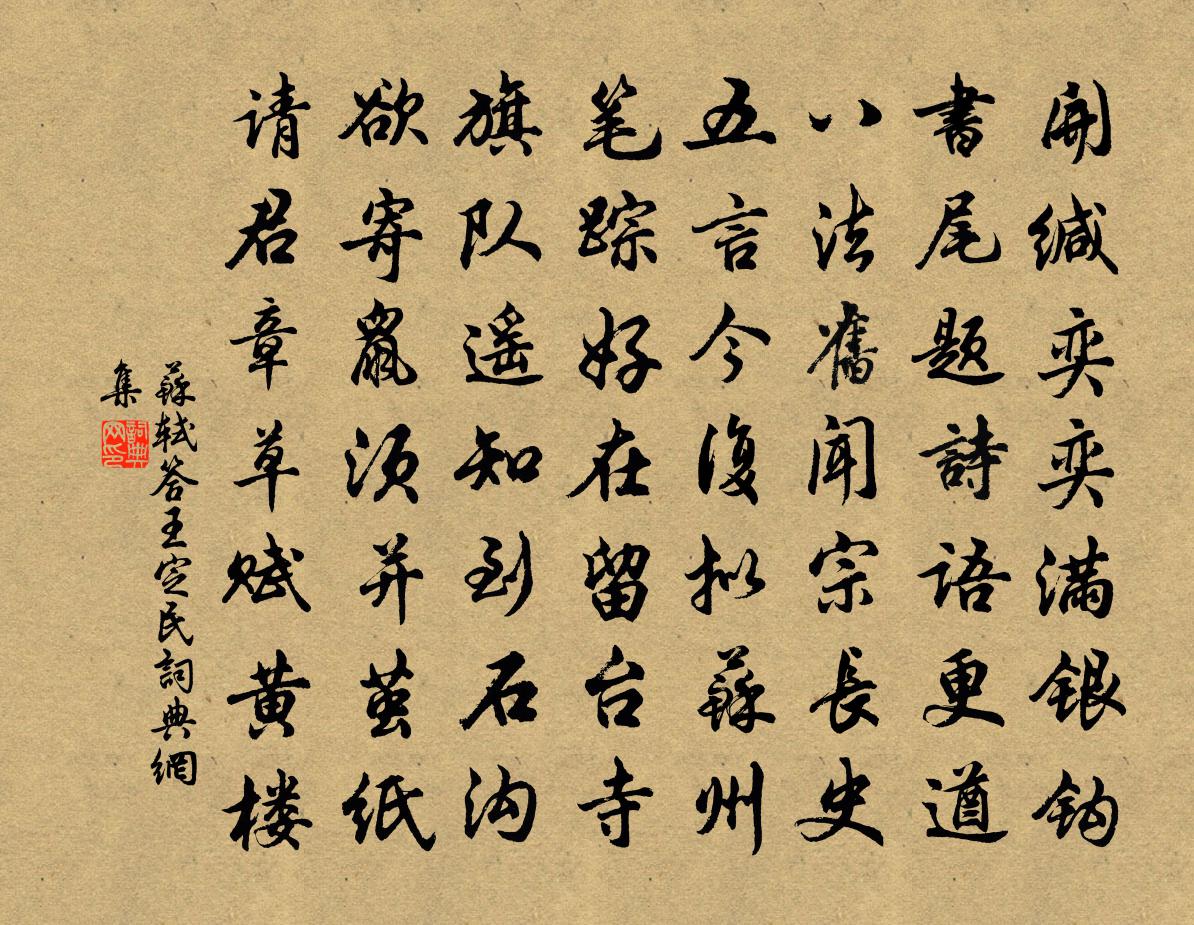 開缄奕奕满银钩
書尾题詩語更遒
八法舊聞宗長史
五言今復拟蘇州
笔踪好在留台寺
旗队遥知到石沟
欲寄鼠须并茧纸
请君章草赋黄楼
蘇轼答王定民詞典網
集
詞典
网印